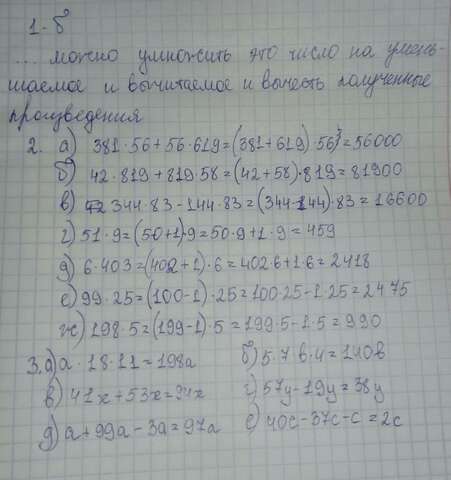 1-б
... можно умножить это число на умень-
шаемое и вычитаемое и вычесть полученные
произведения
2. а) 381·56+56·619=(381+619)·56=56000
б) 42·819+819·58=(42+58)·819=81900
в) 344·83-144·83=(344-144)·83=16600
г) 51·9=(50+1)·9=50·9+1·9=459
д) 6·403=(402+1)·6=402·6+1·6=2418
е) 99·25=(100-1)·25=100·25-1·25=2475
ж) 198·5=(199-1)·5=199·5-1·5=990
3. а) а·18·11=198а б) 5·7·в·4=140в
в) 41х+53х=94х г) 57у-19у=38у
д) а+99а-3а=97а е) 40с-37с-с=2с